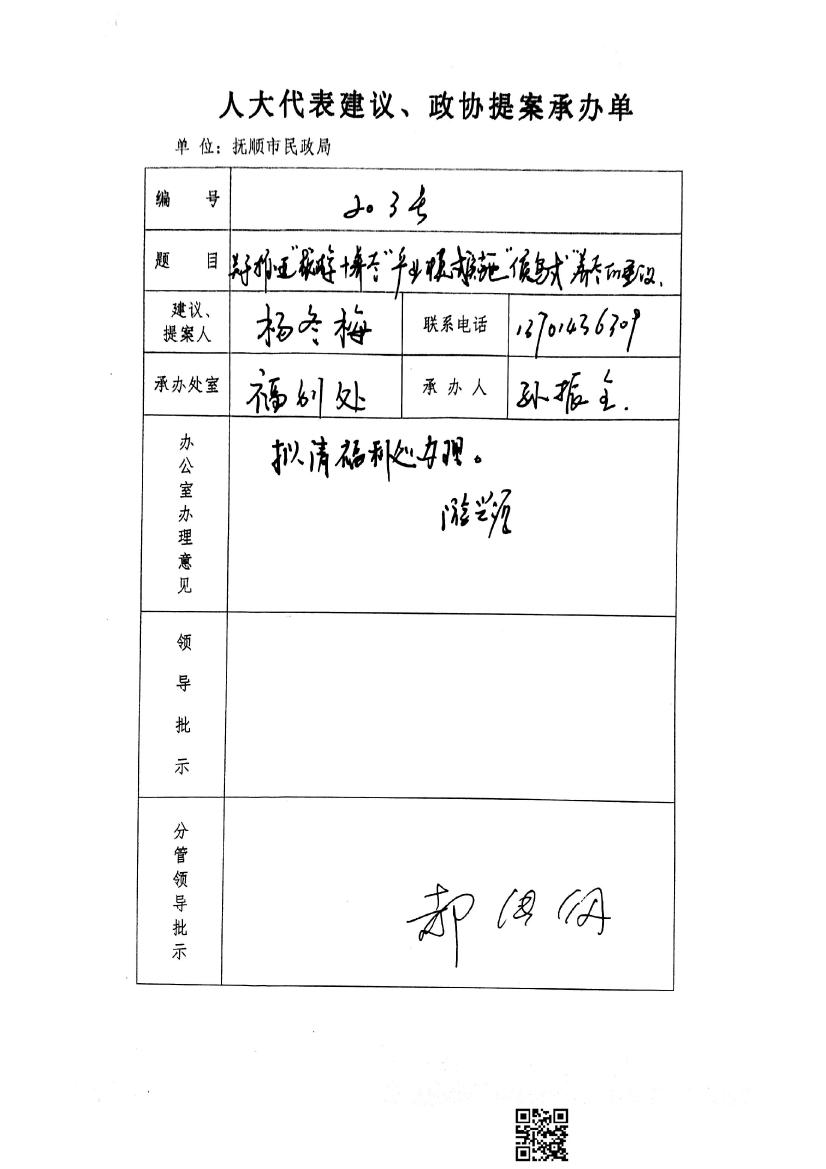 人大代表建议、政协提案承办单
单 位：抚顺市民政局
编 号 203号
题 目 关于推进"旅游+养老"产业模式实施"候鸟式"养老的建议.
建议、提案人 杨冬梅 联系电话 13701436309
承办处室 福利处 承 办 人 孙振全.
办公室办理意见 拟请福利处办理。
领导批示
分管领导批示 郝